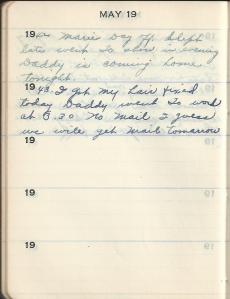 MAY 19
19 42 Marie's Day off slept
late went to show in evening
Daddy is coming home
tonight.
19 43. I got my hair fixed
today Daddy went to work
at 8.30 No Mail I guess
we will get mail tomorrow
19
19
19